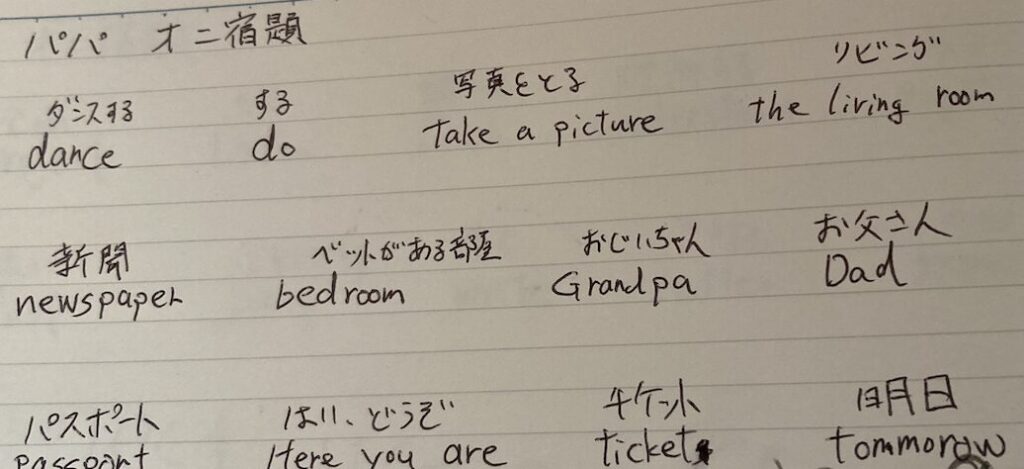 パパ オニ宿題
ダンスする する 写真をとる リビング
dance do take a picture the living room
新聞 ベットがある部屋 おじいちゃん お父さん
newspaper bedroom Grandpa Dad
パスポート はい、どうぞ チケット 明日
Passport Here you are ticket tommorow